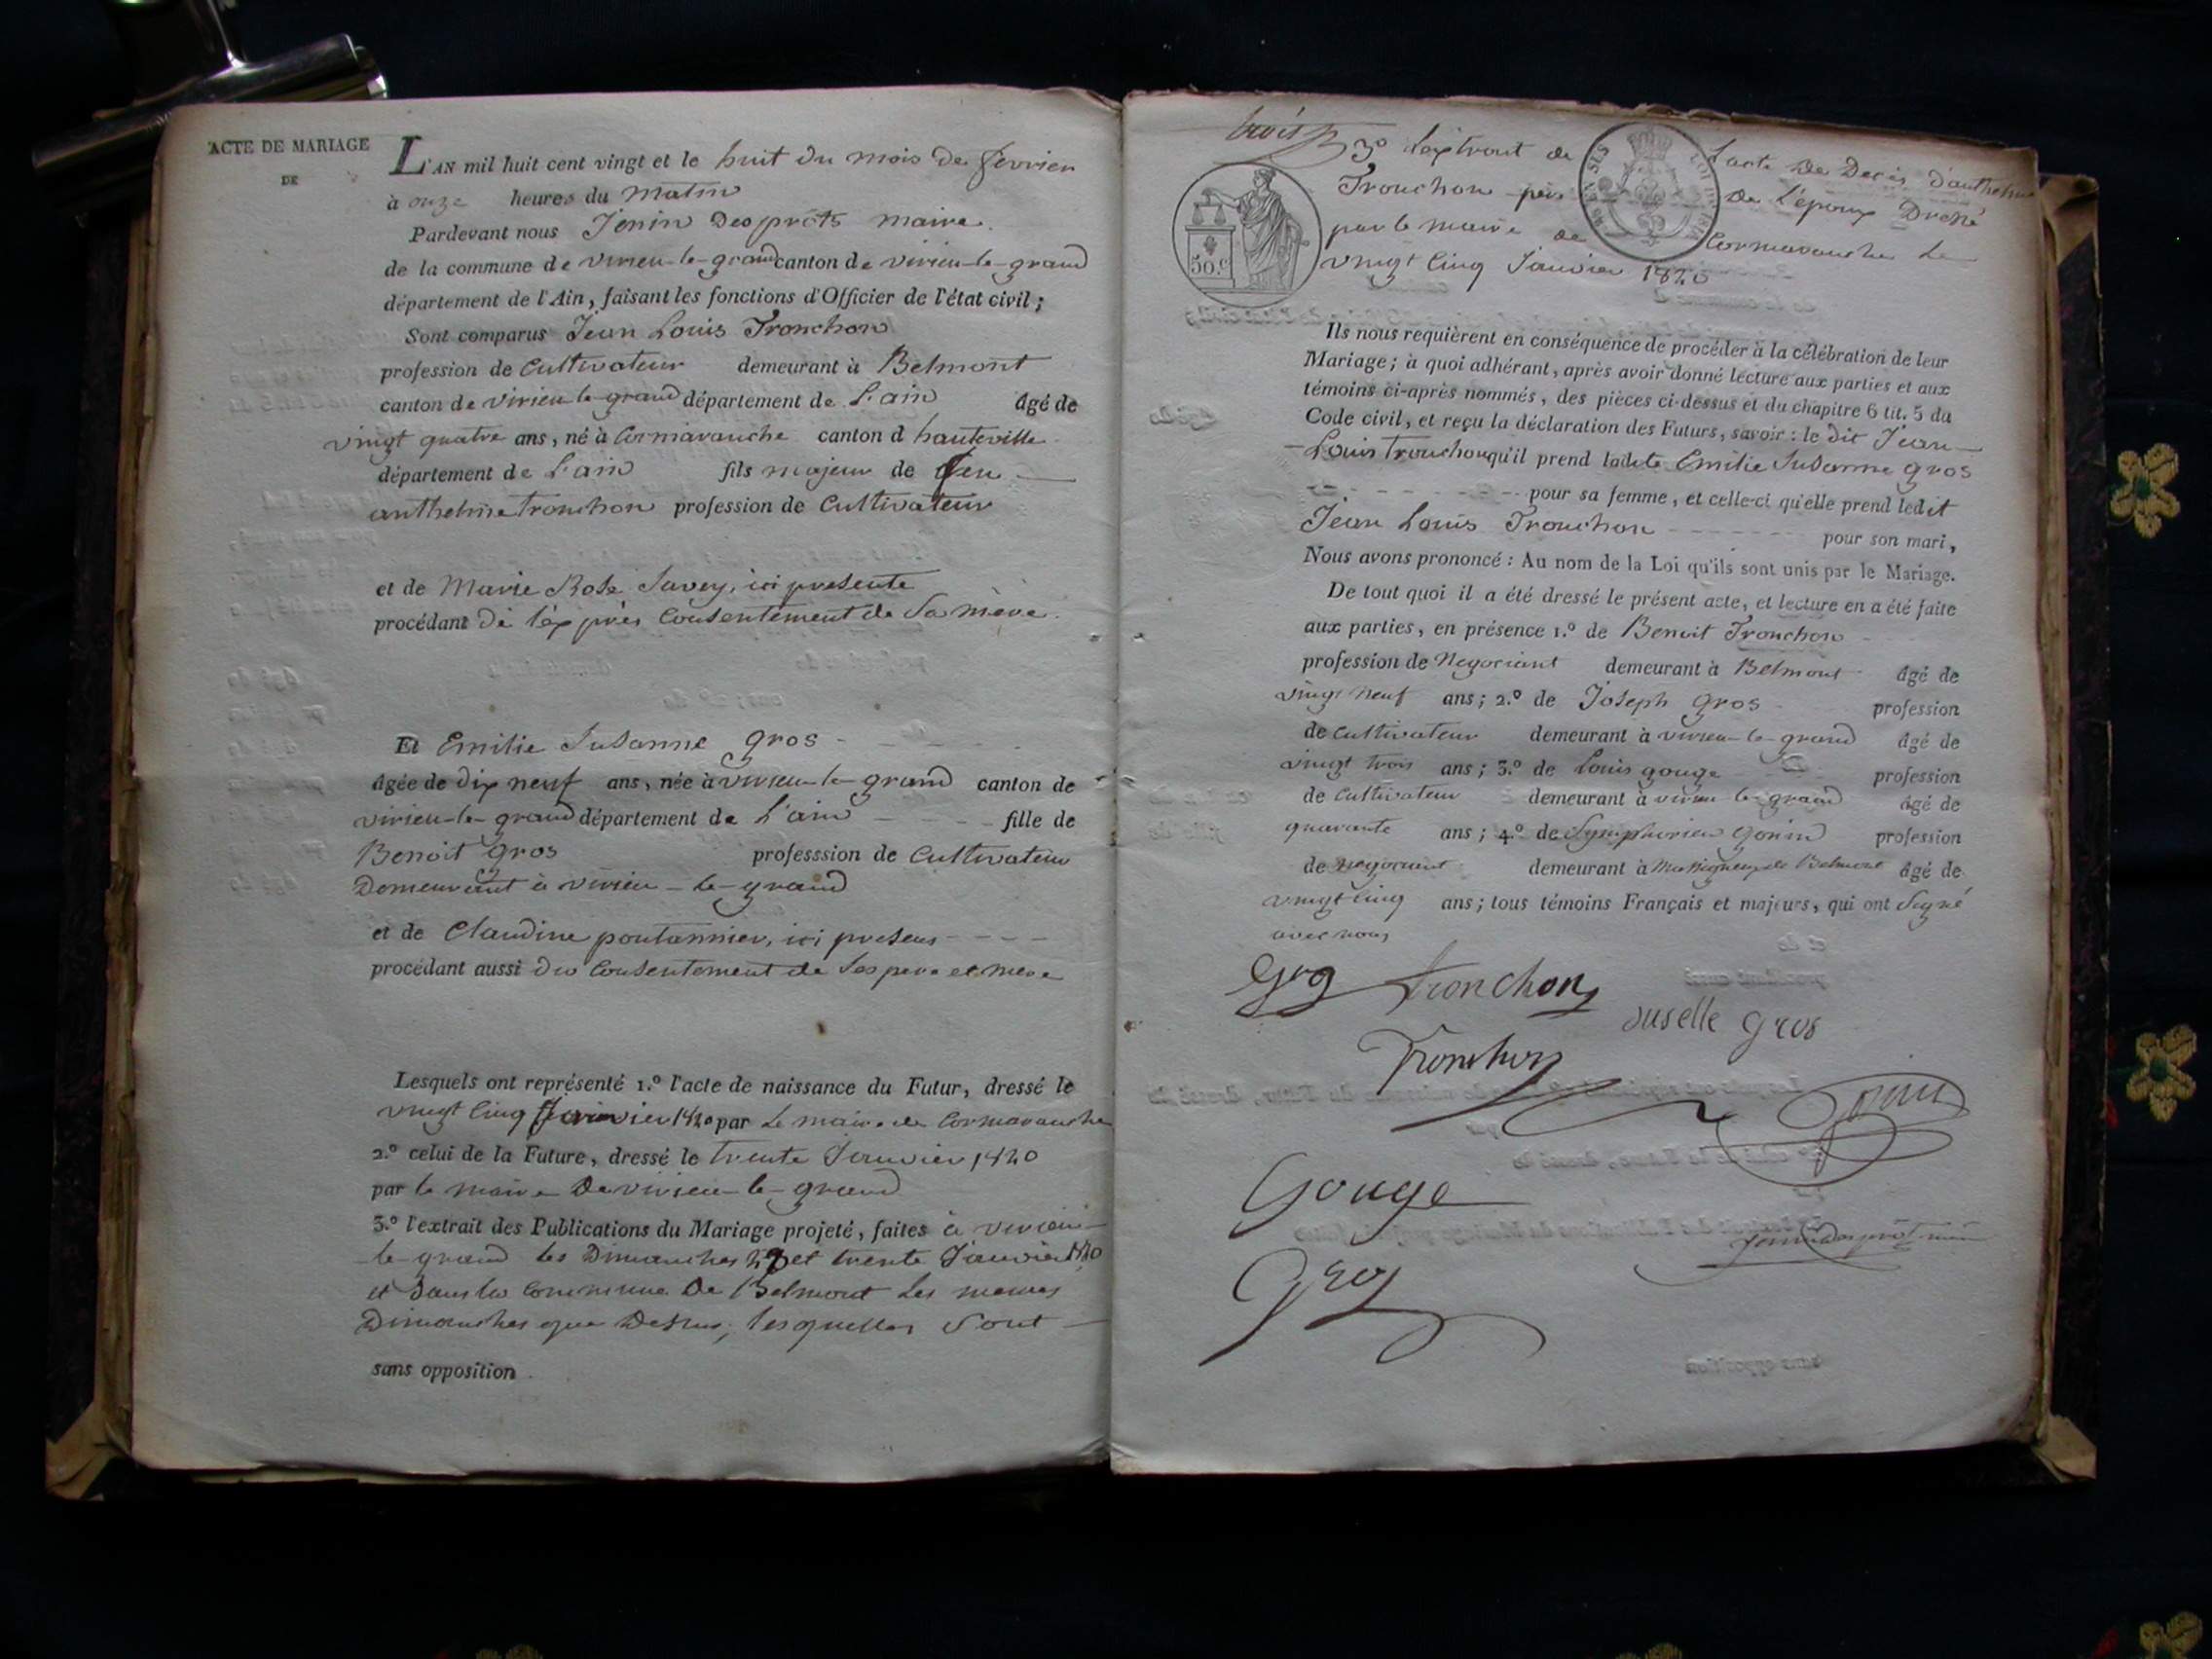 ACTE DE MARIAGE
DE
L'AN mil huit cent vingt et le huit du mois de fevrier
à onze heures du matin
Pardevant nous Jenin Desprots maire
de la commune de virieu-le-grand canton de virieu-le-grand
département de l'Ain, faisant les fonctions d'Officier de l'état civil;
Sont comparus Jean Louis Tronchon
profession de Cultivateur demeurant à Belmont
canton de virieu le grand département de L'ain âgé de
vingt quatre ans, né à Cormaranche canton d hauteville
département de L'ain fils majeur de feu
anthelme tronchon profession de Cultivateur
et de Marie Rose Savey, ici presente
procédant de l'exprès Consentement de Sa mère
Et Emilie Susanne gros
âgée de dix neuf ans, née à virieu-le-grand canton de
virieu-le-grand département de L'ain fille de
Benoit gros professsion de Cultivateur
Demeurant à virieu-le-grand
et de Claudine pontannier, ici presens
procédant aussi du Consentement de ses pere et mere
Lesquels ont représenté 1.º l'acte de naissance du Futur, dressé le
vingt Cinq Janvier 1820 par Le maire de Cormaranche
2.º celui de la Future, dressé le trente Janvier 1820
par le maire De virieu-le-grand
3.º l'extrait des Publications du Mariage projeté, faites à virieu-
le-grand les Dimanches et trente Janvier 1820
et dans la Commune De Belmont Les memes
Dimanches que Dessus, lesquelles Sont
sans opposition
trois
3º L'extrait de L'acte De Décès d'anthelme
Tronchon père De L'époux Dressé
par le maire de Cormaranche Le
vingt Cinq Janvier 1820
50.c
Ils nous requièrent en conséquence de procéder à la célébration de leur
Mariage; à quoi adhérant, après avoir donné lecture aux parties et aux
témoins ci-après nommés, des pièces ci-dessus et du chapitre 6 tit. 5 du
Code civil, et reçu la déclaration des Futurs, savoir: le dit Jean
Louis Tronchon qu'il prend ladite Emilie Susanne gros
pour sa femme, et celle-ci qu'elle prend ledit
Jean Louis Tronchon pour son mari,
Nous avons prononcé: Au nom de la Loi qu'ils sont unis par le Mariage.
De tout quoi il a été dressé le présent acte, et lecture en a été faite
aux parties, en présence 1.º de Benoit Tronchon
profession de Negociant demeurant à Belmont âgé de
vingt neuf ans; 2.º de Joseph gros profession
de Cultivateur demeurant à virieu-le-grand âgé de
vingt trois ans; 3.º de Louis gouge profession
de Cultivateur demeurant à virieu le grand âgé de
quarante ans; 4.º de Symphorien Gonin profession
de Negociant demeurant à Belmont âgé de
vingt Cinq ans; tous témoins Français et majeurs, qui ont Signé
avec nous
Gros tronchon
suselle gros
Tronchon
Gonin
Gouge
Jenin desprots maire
Gros